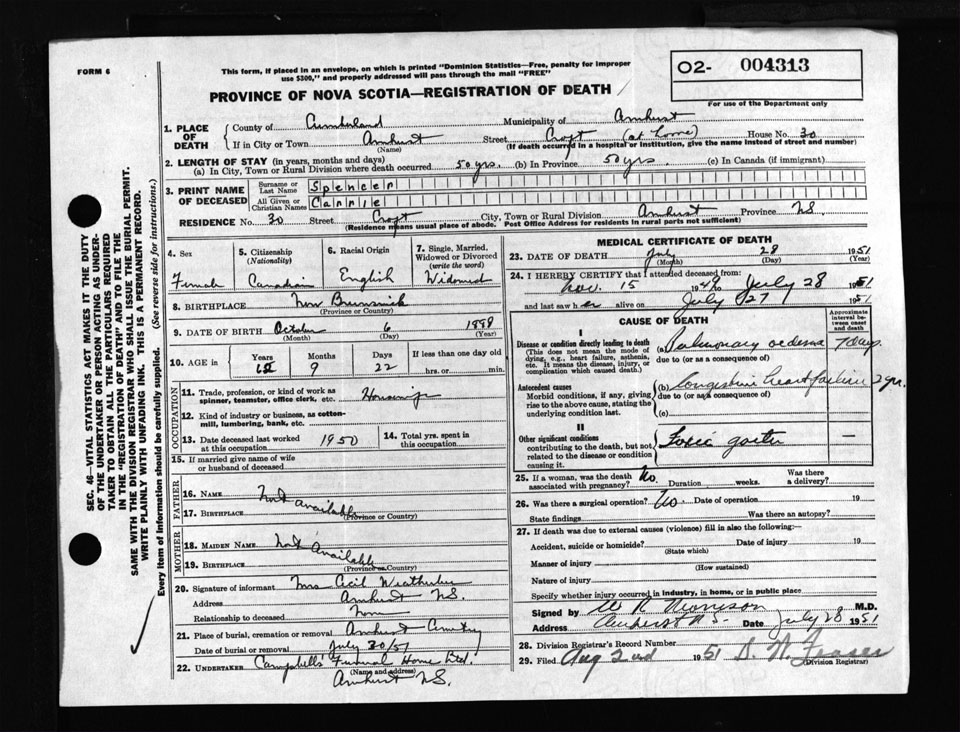 FORM 6
This form, if placed in an envelope, on which is printed "Dominion Statistics—Free, penalty for improper
use $300," and properly addressed will pass through the mail "FREE"
O2- 004313
For use of the Department only
PROVINCE OF NOVA SCOTIA—REGISTRATION OF DEATH
1. PLACE OF DEATH
County of Cumberland Municipality of Amherst
If in City or Town Amherst Street Croft (at home) House No. 30
(Name) (If death occurred in a hospital or institution, give the name instead of street and number)
2. LENGTH OF STAY (in years, months and days)
(a) In City, Town or Rural Division where death occurred 50 yrs. (b) In Province 50 yrs. (c) In Canada (if immigrant)
3. PRINT NAME OF DECEASED
Surname or Last Name Spencer
All Given or Christian Names Carrie
RESIDENCE No. 30 Street Croft City, Town or Rural Division Amherst Province N.S.
(Residence means usual place of abode. Post Office Address for residents in rural parts not sufficient)
4. Sex
Female
5. Citizenship (Nationality)
Canadian
6. Racial Origin
English
7. Single, Married, Widowed or Divorced (write the word)
Widowed
8. BIRTHPLACE New Brunswick
(Province or Country)
9. DATE OF BIRTH October 6 1888
(Month) (Day) (Year)
10. AGE in Years 62 Months 9 Days 22 If less than one day old
hrs. or min.
OCCUPATION
11. Trade, profession, or kind of work as spinner, teamster, office clerk, etc. Housewife
12. Kind of industry or business, as cotton-mill, lumbering, bank, etc.
13. Date deceased last worked at this occupation 1950
14. Total yrs. spent in this occupation
15. If married give name of wife or husband of deceased
FATHER
16. NAME Not available
17. BIRTHPLACE
(Province or Country)
MOTHER
18. MAIDEN NAME Not Available
19. BIRTHPLACE
(Province or Country)
20. Signature of informant Mrs Cecil Weatherbee
Address Amherst N.S.
Relationship to deceased None
21. Place of burial, cremation or removal Amherst Cemetery
Date of burial or removal July 30/51
22. UNDERTAKER Campbells Funeral Home Ltd.
(Name and address)
Amherst N.S.
MEDICAL CERTIFICATE OF DEATH
23. DATE OF DEATH July 28 1951
(Month) (Day) (Year)
24. I HEREBY CERTIFY that I attended deceased from:
Nov. 15 1948 to July 28 1951
and last saw her alive on July 27 1951
CAUSE OF DEATH
Approximate interval between onset and death
I
Disease or condition directly leading to death
(This does not mean the mode of dying, e.g., heart failure, asthenia, etc. It means the disease, injury, or complication which caused death.)
(a) Pulmonary oedema 7 days
due to (or as a consequence of)
Antecedent causes
Morbid conditions, if any, giving rise to the above cause, stating the underlying condition last.
(b) Congestive heart failure 2 yrs.
due to (or as a consequence of)
(c)
II
Other significant conditions
contributing to the death, but not related to the disease or condition causing it.
Toxic goiter
25. If a woman, was the death associated with pregnancy? No. Duration weeks. Was there a delivery?
26. Was there a surgical operation? No Date of operation 19
State findings Was there an autopsy?
27. If death was due to external causes (violence) fill in also the following:—
Accident, suicide or homicide? Date of injury 19
(State which)
Manner of injury
(How sustained)
Nature of injury
Specify whether injury occurred in industry, in home, or in public place
Signed by W R Morrison M.D.
Address Amherst N.S. Date July 28 1951
28. Division Registrar's Record Number
29. Filed Aug 2nd 1951 D. W. Fraser
(Division Registrar)
SEC. 46—VITAL STATISTICS ACT MAKES IT THE DUTY
OF THE UNDERTAKER OR PERSON ACTING AS UNDER-
TAKER TO OBTAIN ALL THE PARTICULARS REQUIRED
IN THE "REGISTRATION OF DEATH" AND TO FILE THE
SAME WITH THE DIVISION REGISTRAR WHO SHALL ISSUE THE BURIAL PERMIT.
WRITE PLAINLY WITH UNFADING INK. THIS IS A PERMANENT RECORD.
Every item of Information should be carefully supplied. (See reverse side for instructions.)